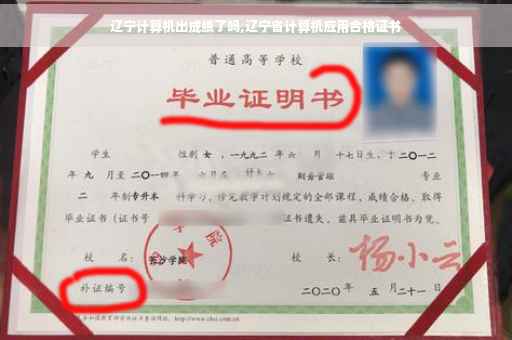 辽宁计算机出成绩了吗,辽宁省计算机应用合格证书
普通高等学校
毕业证明书
学生 性别 女 ,一九九二 年 六 月 十七日生,于 二〇一二
年 九 月至 二〇一四 年 六月在 财务管理 专业
二 年制 专升本 科学习,修完教学计划规定的全部课程,成绩合格,取得
毕业证书(证书号 证书遗失,兹具毕业证明书为凭。
校 名: 长沙学院 校 长: 杨小云
补证编号 二〇二〇年 五 月 二十一 日
http://www.chsi.com.cn